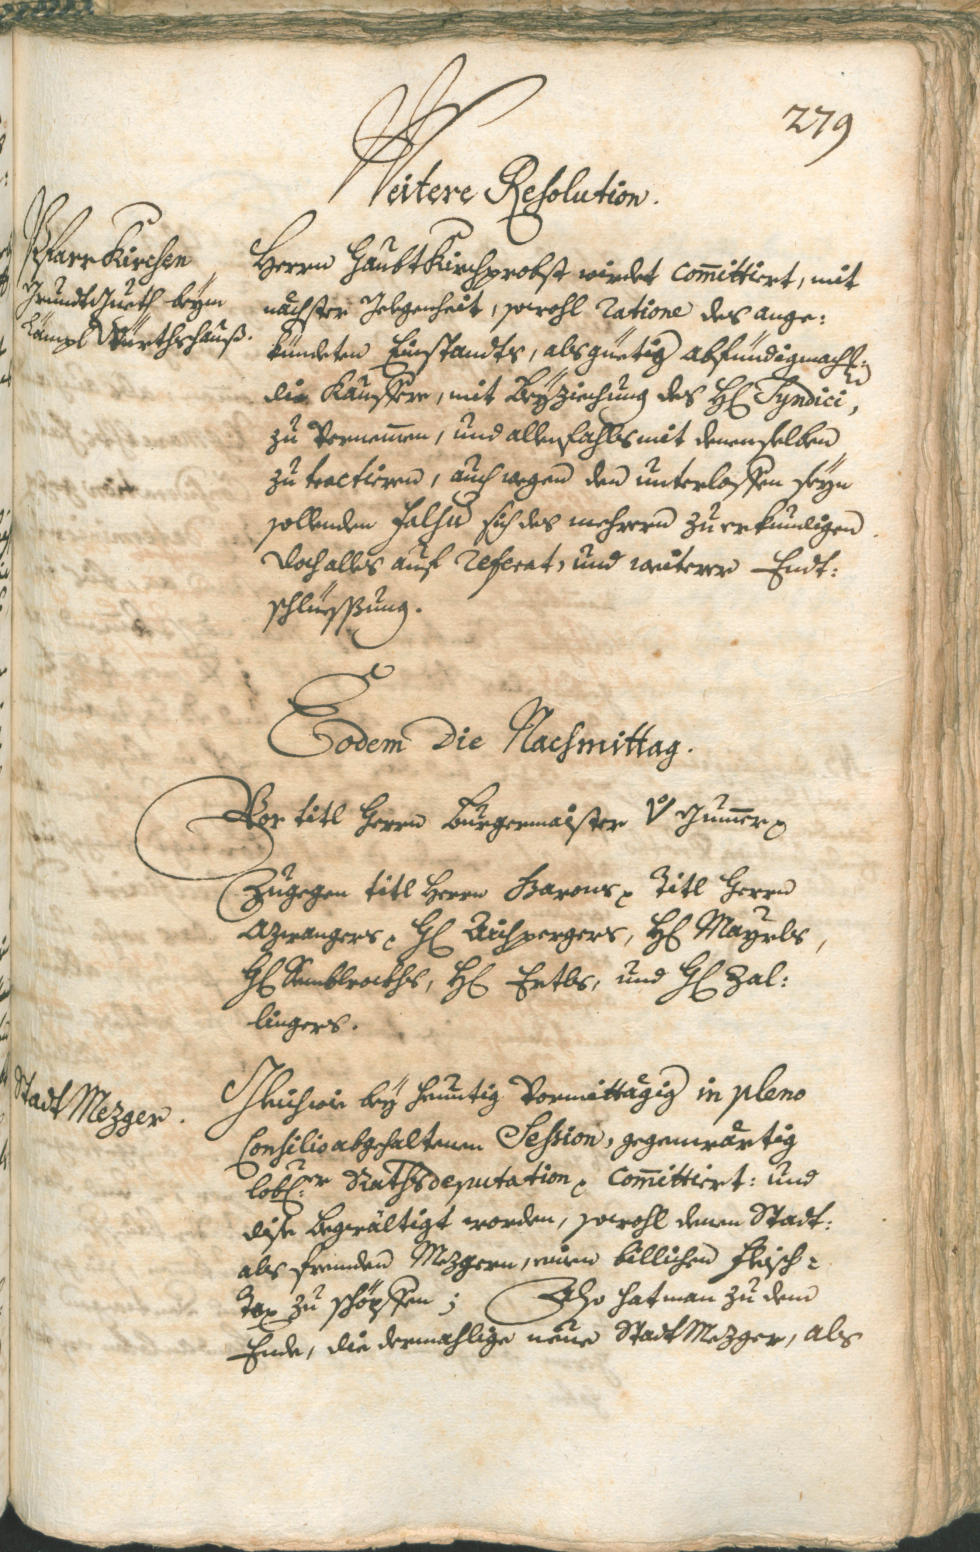 279
Weitere Resolution.
Pfarr Kirchen
Grundt Gueth beym
Kämpl Würthshauß.
Herrn Haubt Kirchprobst wirdet com̄ittiert, mit
nächster Gelegenheit, sowohl ratione des ange:
kündeten Einstandts, als güetig abfündigmachu͂g
die Kauffere, mit Beyziehung des H: Syndici,
zu Vernem̄en, und allenfahls mit denenselben
zu tractieren, auch wegen den unterloffen seyn
sollenden falsu͂ sich des mehrern zu erkundigen
doch alles auf referat, und weitere Endt:
schlüessung.
Eodem Die Nachmittag.
Vor titl Herrn Burgermaister v: Gum̄er
Zugegen titl Herrn Barons titl Herrn
Azwangers H: Aichpergers, H: Mayrls,
H: Semblrockhs, H: Ertls, und H: Zal:
lingers.
Stadt Mezger.
Gleichwie bey heuntig Vormittägig in pleno
Consilio abgehaltenen Session, gegenwärtig
löbl:er Raths deputation com̄ittiert: und
dise Begwältigt worden, sowohl denen Stadt:
als frembden Mezgern, einen billichen Fleisch:
Tax zu schöpffen; Also hat man zu dem
Ende, die dermahlige neue Stadt Mezger, als